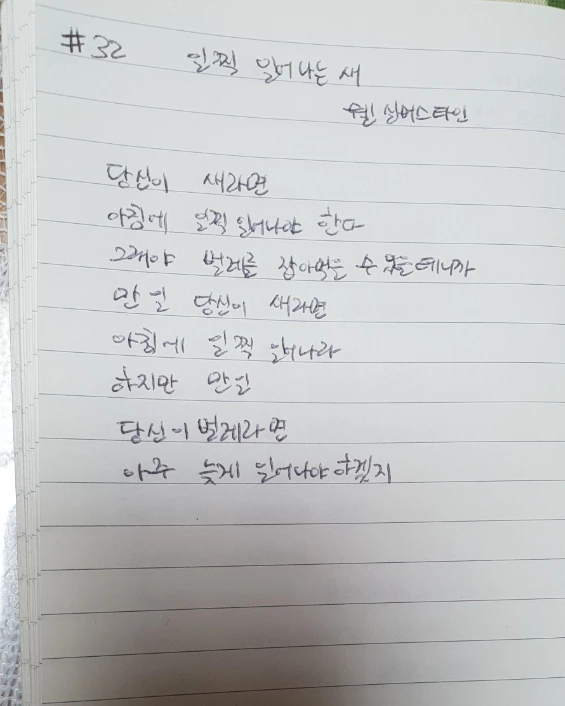 #32 일찍 일어나는 새
쉘 실버스타인
당신이 새라면
아침에 일찍 일어나야 한다
그래야 벌레를 잡아먹을 수 있을테니까
만일 당신이 새라면
아침에 일찍 일어나라
하지만 만일
당신이 벌레라면
아주 늦게 일어나야하겠지